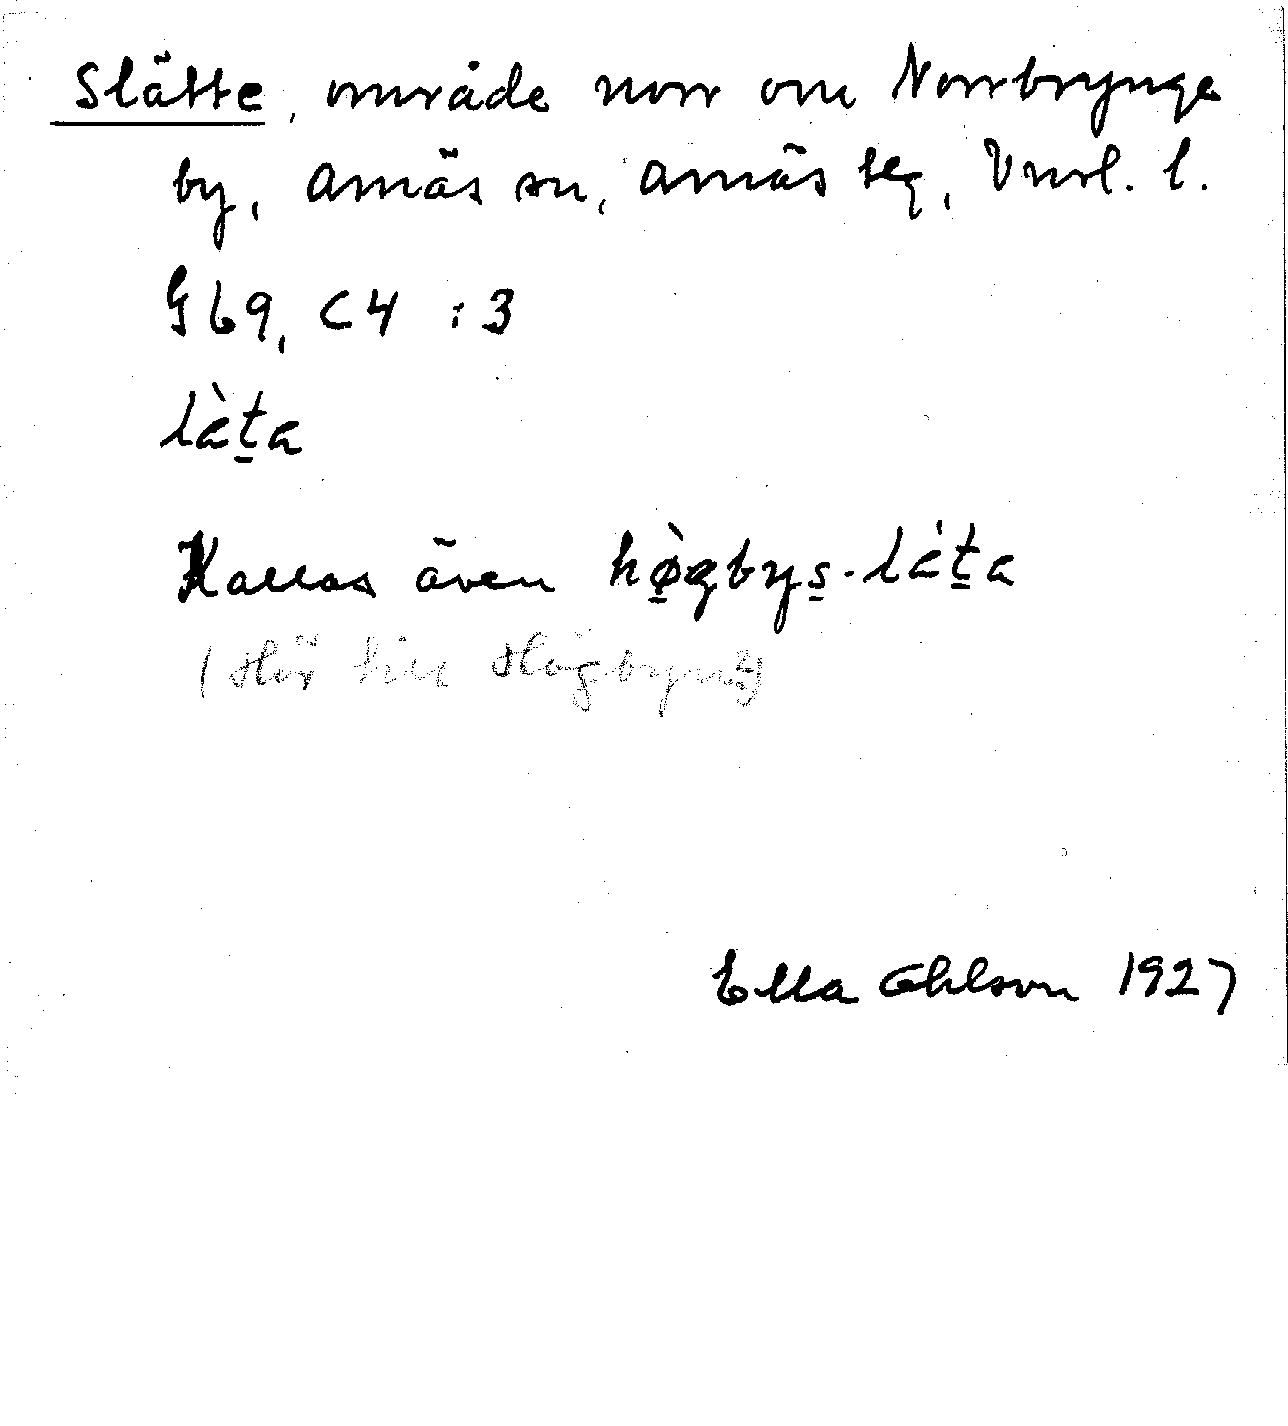 Slätte, område norr om Norrbrynge
by, Arnäs sn, Arnäs tg, Vnrl. l.
G 69, C 4 : 3
lȁt̠a
Kallas även hø̠̀gbys̠-lȁt̠a
(Hör till Högbyn?)
Ella Ohlson 1927